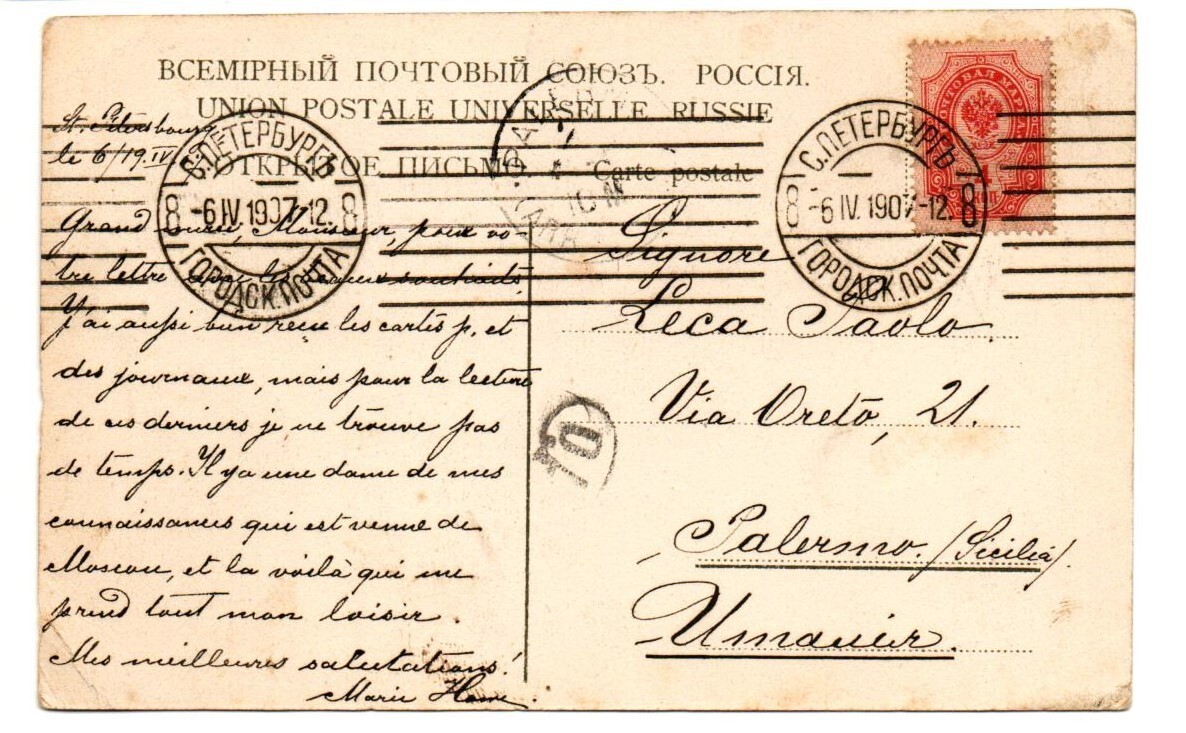 ВСЕМІРНЫЙ ПОЧТОВЫЙ СОЮЗЪ. РОССІЯ.
UNION POSTALE UNIVERSELLE RUSSIE
ОТКРЫТОЕ ПИСЬМО. Carte postale
St. Pétersbourg
le 6/19. IV
Grand merci, Monsieur, pour vo-
tre lettre souhaits.
J'ai aussi bien reçu les cartes p. et
des journaux, mais pour la lecture
de ces derniers je ne trouve pas
de temps. Il y a une dame de mes
connaissances qui est venue de
Moscou, et la voilà qui me
prend tout mon loisir.
Mes meilleures salutations!
Marie
Signore
Leca Paolo.
Via Oreto, 21.
Palermo. (Sicilia).
С.ПЕТЕРБУРГЪ
8 -6 IV 1907-12. 8
ГОРОДСК.ПОЧТА
С.ПЕТЕРБУРГЪ
8 -6 IV 1907-12. 8
ГОРОДСК.ПОЧТА
ПОЧТОВАЯ МАРКА